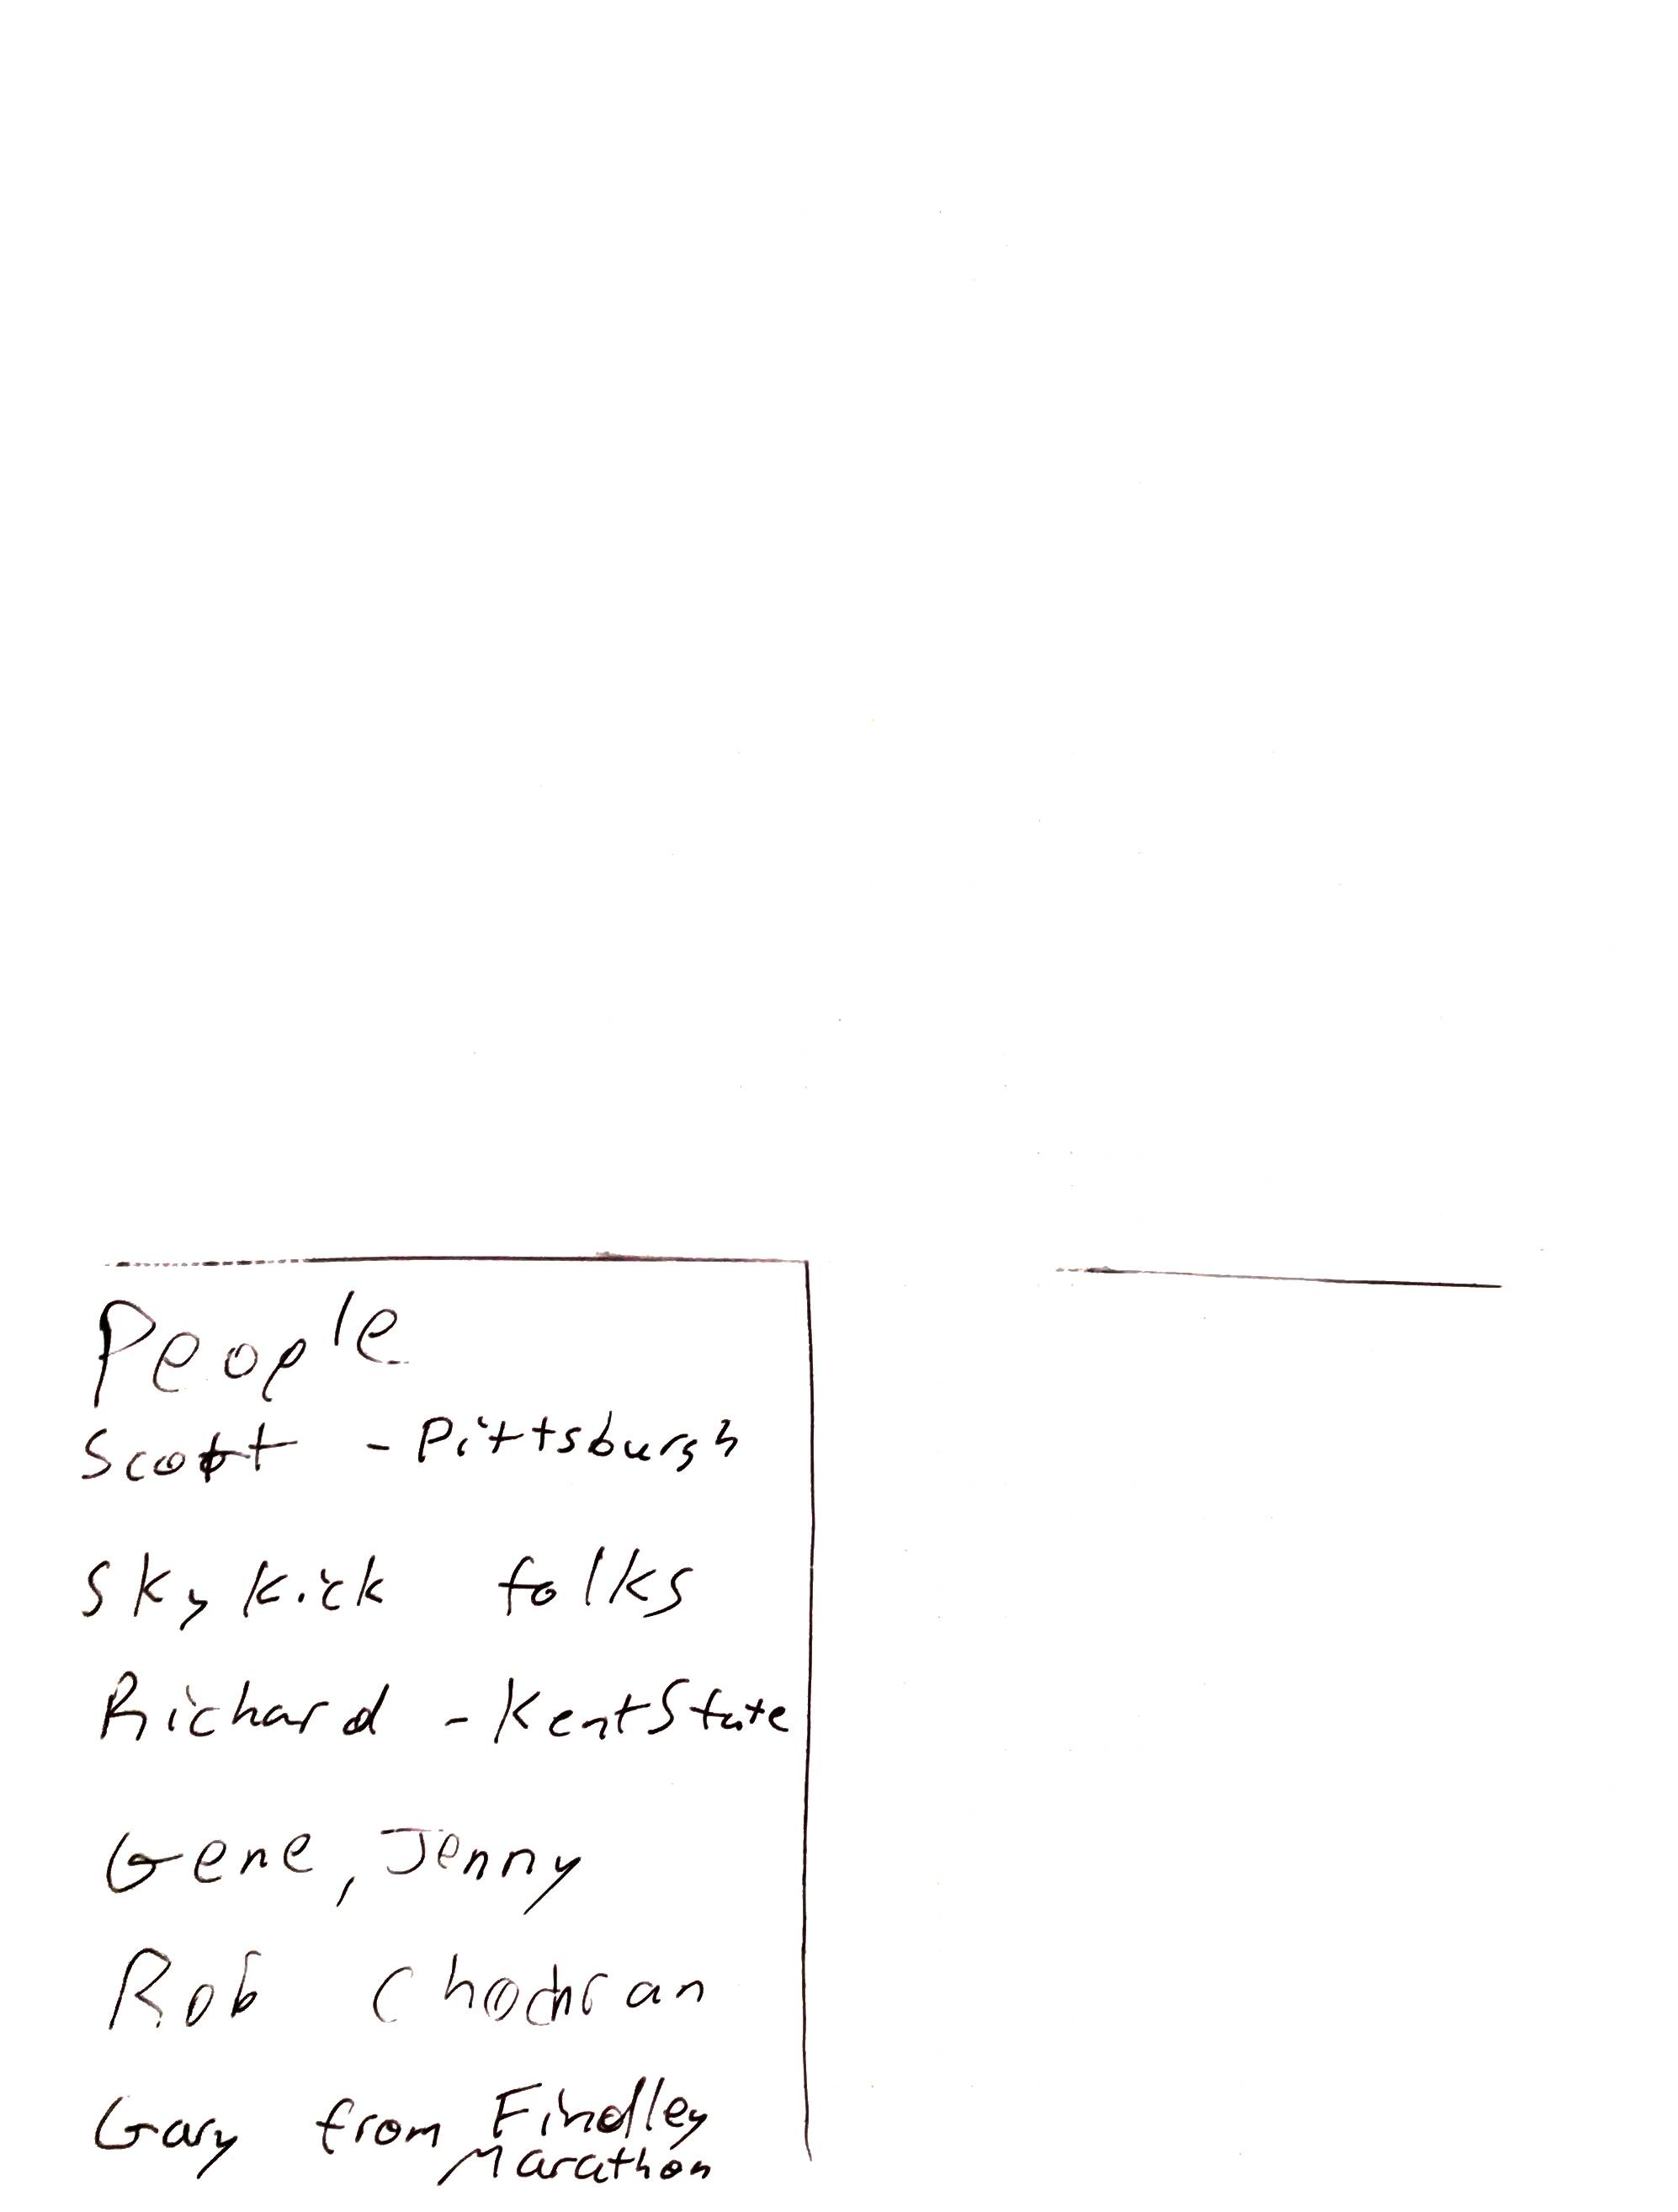 People
Scott - Pittsburgh
Skykick folks
Richard - Kent State
Gene, Jenny
Rob Chochran
Gary from Findley
Marathon